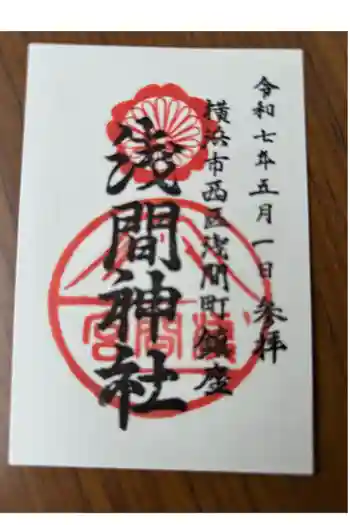 令和七年五月一日参拝
横浜市西区浅間町鎮座
浅間神社